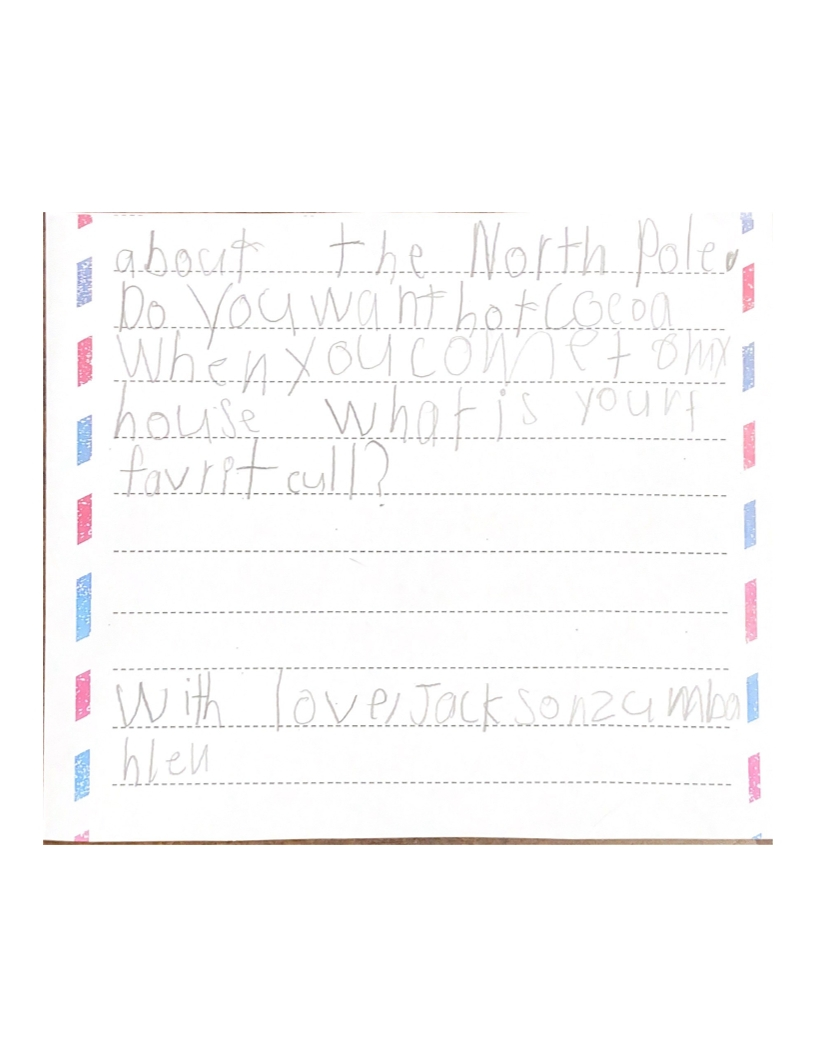 about the North Pole.
Do You want hot Cocoa
When you come t 8 my
house What is yourf
favrit cull?
With love, Jackson zumba
hlen